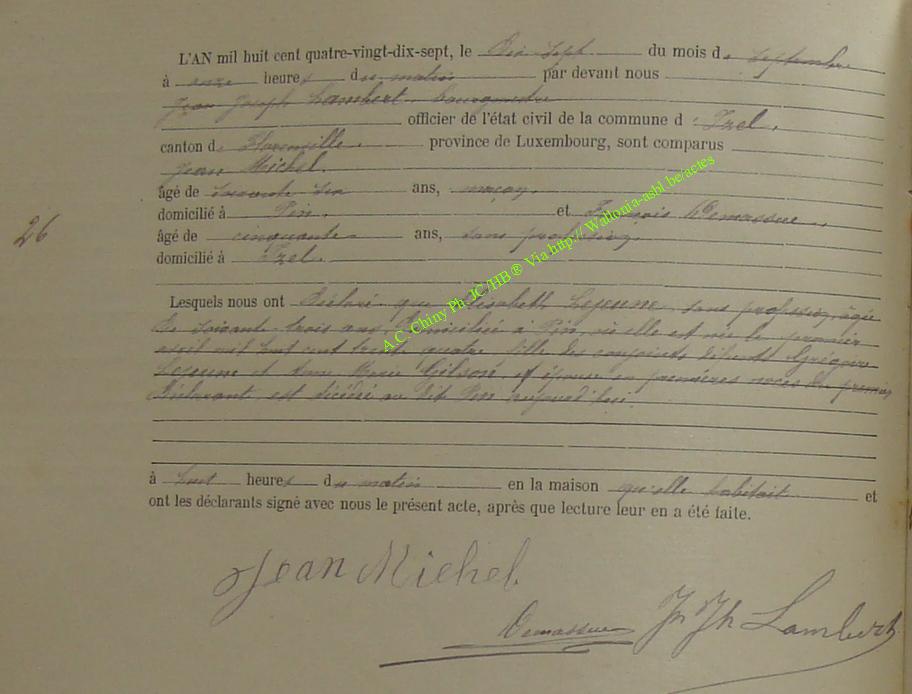 L'AN mil huit cent quatre-vingt-dix-sept, le Dix Sept du mois de Septembre
à onze heures du matin par devant nous
Jean Joseph Lambert bourgmestre
officier de l'état civil de la commune d'Izel,
canton de Florenville province de Luxembourg, sont comparus
Jean Michel
âgé de soixante ans, maçon,
domicilié à Pin, et François Demassue,
âgé de cinquante ans, sans profession,
domicilié à Izel.
26
Lesquels nous ont Déclaré que Elisabeth Lejeune, sans profession, âgée
de soixante trois ans, Domiciliée à Pin, où elle est née le premier
avril mil huit cent trente quatre, fille des conjoints défunts Grégoire
Lejeune et Anne Marie Gilson, et épouse en premières noces du premier
Déclarant, est décédée au dit Pin aujourd'hui
à huit heures du matin en la maison qu'elle habitait et
ont les déclarants signé avec nous le présent acte, après que lecture leur en a été faite.
Jean Michel
Demassue Jn Jh Lambert
A.C. Chiny Ph. JC/HB ® Via http:// Wallonia-asbl.be/actes